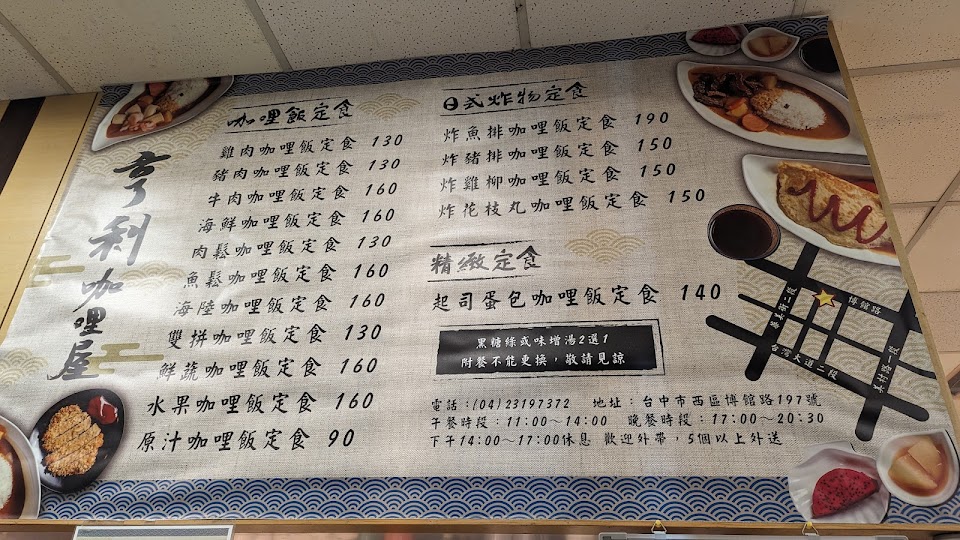 亨利咖哩屋
咖哩飯定食
雞肉咖哩飯定食 130
豬肉咖哩飯定食 130
牛肉咖哩飯定食 160
海鮮咖哩飯定食 160
肉鬆咖哩飯定食 130
魚鬆咖哩飯定食 160
海陸咖哩飯定食 160
雙拼咖哩飯定食 130
鮮蔬咖哩飯定食 160
水果咖哩飯定食 160
原汁咖哩飯定食 90
日式炸物定食
炸魚排咖哩飯定食 190
炸豬排咖哩飯定食 150
炸雞柳咖哩飯定食 150
炸花枝丸咖哩飯定食 150
精緻定食
起司蛋包咖哩飯定食 140
黑糖綠或味增湯2選1
附餐不能更換，敬請見諒
電話：(04)23197372 地址：台中市西區博館路197號
午餐時段：11:00～14:00 晚餐時段：17:00～20:30
下午14:00～17:00休息 歡迎外帶，5個以上外送
博館路
台灣大道二段
美村路一段